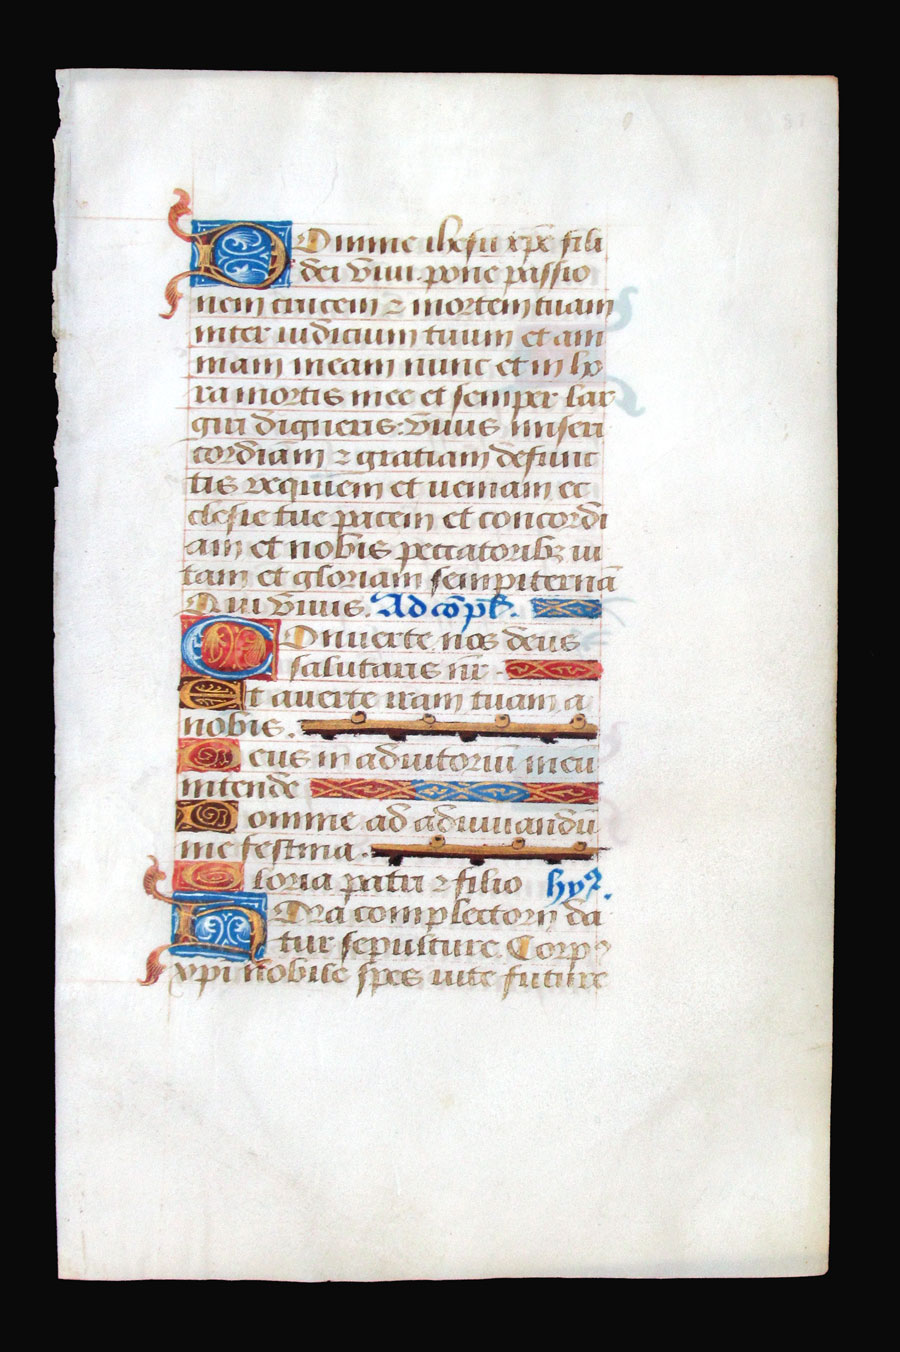 Domine ihesu xpē fili
dei vivi pone passio
nem crucem ⁊ mortem tuam
inter iudicium tuum et ani
mam meam nunc et in ho
ra mortis mee et semper lar
giri digneris : vivis miseri
cordiam ⁊ gratiam defunc
tis requiem et ueniam ec
clesie tue pacem et concordi
am et nobis peccatoribꝫ ui
tam et gloriam sempiternā
Qui vivis. Ad cōpl̄.
Converte nos deus
salutaris nr̄
Et averte iram tuam a
nobis.
Deus in adiutoriū meū
intende
Domine ad adiuuandū
me festina.
Gloria patri ⁊ filio hyꝰ.
Hora completorij da
tur sepulture Corpꝰ
xpi nobile spes uite future